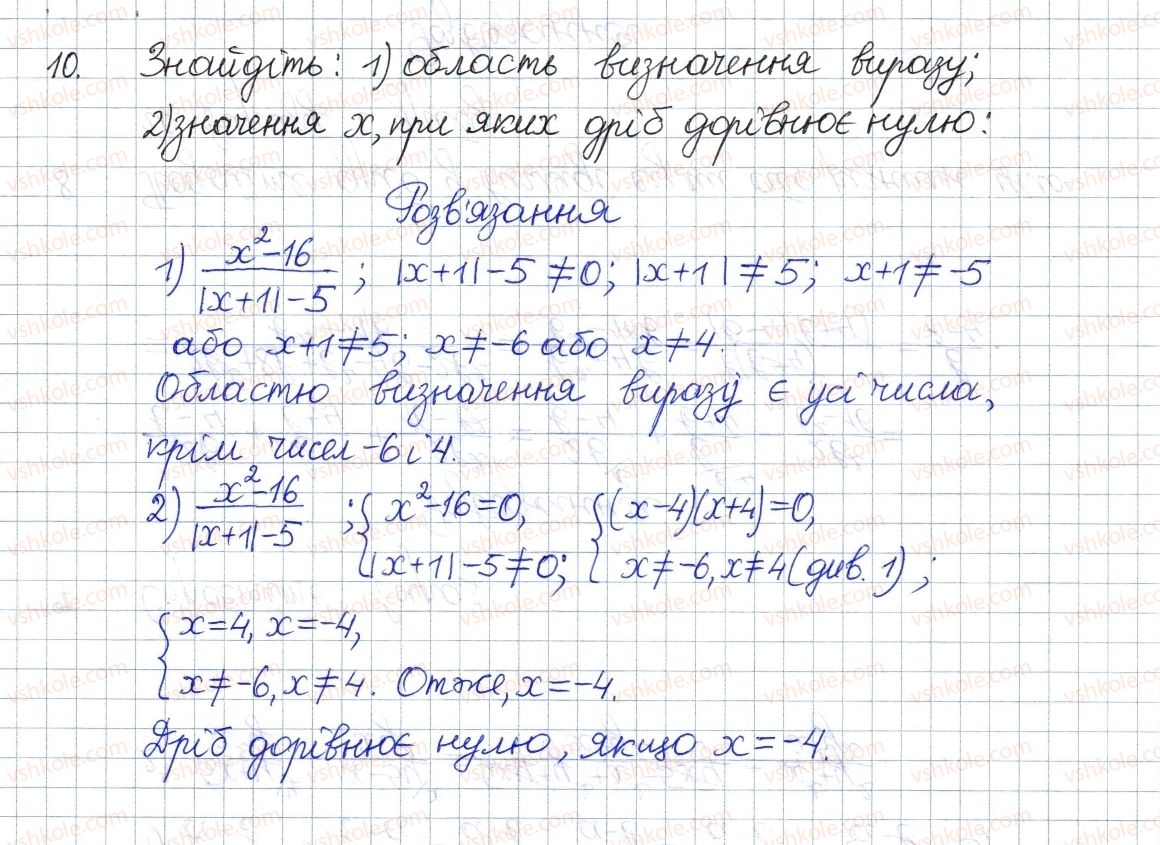 10. Знайдіть: 1) область визначення виразу;
2) значення x, при яких дріб дорівнює нулю:
Розв'язання
1) (x²-16)/(|x+1|-5); |x+1|-5≠0; |x+1|≠5; x+1≠-5
або x+1≠5; x≠-6 або x≠4.
Областю визначення виразу є усі числа,
крім чисел -6 і 4.
2) (x²-16)/(|x+1|-5); { x²-16=0, |x+1|-5≠0; { (x-4)(x+4)=0, x≠-6, x≠4 (див. 1);
{ x=4, x=-4,
x≠-6, x≠4. Отже, x=-4.
Дріб дорівнює нулю, якщо x=-4.
vshkole.com